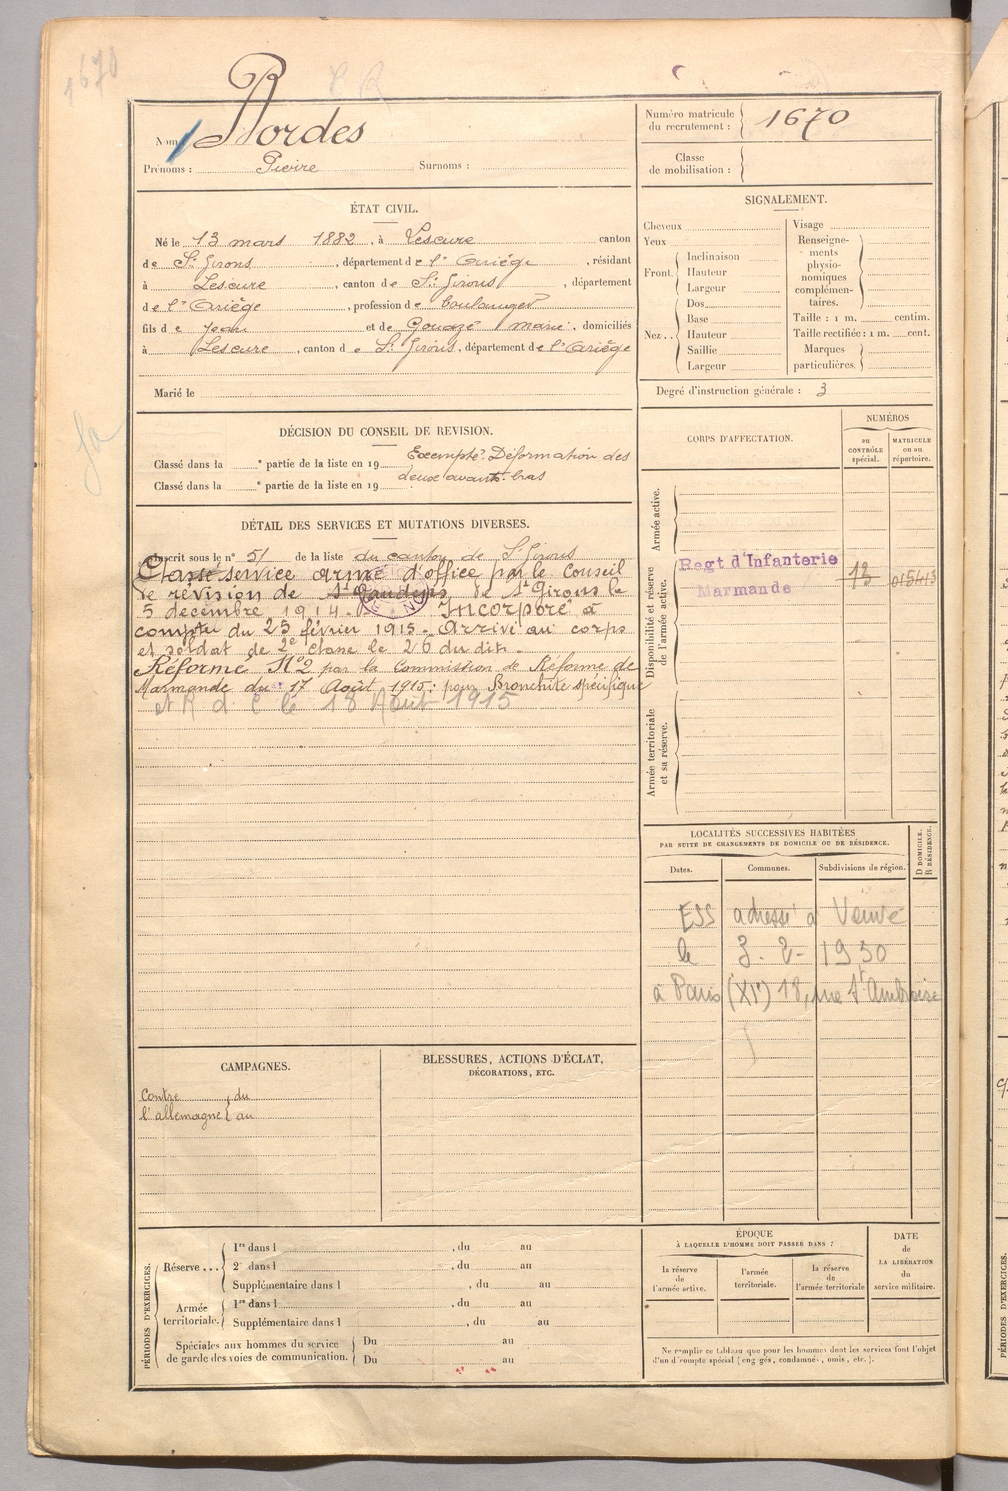 1670
Nom : Bordes
Prénoms : Pierre Surnoms :
Numéro matricule
du recrutement : 1670
Classe
de mobilisation :
ÉTAT CIVIL.
Né le 13 mars 1882, à Lescure canton
de St Girons, département de l'Ariége, résidant
à Lescure, canton de St Girons, département
de l'Ariège, profession de boulanger
fils de Jean et de Gouazé marie, domiciliés
à Lescure, canton de St Girons, département de l'Ariège
Marié le
SIGNALEMENT.
Cheveux
Yeux
Front. Inclinaison
Hauteur
Largeur
Nez.. Dos
Base
Hauteur
Saillie
Largeur
Visage
Renseigne-
ments
physio-
nomiques
complémen-
taires.
Taille : 1 m. centim.
Taille rectifiée : 1 m. cent.
Marques
particulières.
Degré d'instruction générale : 3
DÉCISION DU CONSEIL DE REVISION.
Classé dans la e partie de la liste en 19 Exempté. Déformation des
Classé dans la e partie de la liste en 19 deux avant-bras
CORPS D'AFFECTATION.
NUMÉROS
au
CONTRÔLE
spécial.
MATRICULE
ou au
répertoire.
Armée active.
Disponibilité et réserve
de l'armée active.
Regt d'Infanterie
Marmande
015413
Armée territoriale
et sa réserve.
DÉTAIL DES SERVICES ET MUTATIONS DIVERSES.
Inscrit sous le n° 51 de la liste du canton de St Girons
Classé service armé d'office par le Conseil
de révision de St Gaudens de St Girons le
5 décembre 1914. Incorporé à
compter du 25 février 1915. Arrivé au corps
et soldat de 2e classe le 26 du dit.
Réformé N°2 par la Commission de Réforme de
Marmande du 17 Août 1915; pour Bronchite spécifique
et R d C le 18 Août 1915
LOCALITÉS SUCCESSIVES HABITÉES
PAR SUITE DE CHANGEMENTS DE DOMICILE OU DE RÉSIDENCE.
Dates. Communes. Subdivisions de région.
D DOMICILE.
R RÉSIDENCE.
ESS adressé à Veuve
le 3-2-1930
à Paris (XIe) 18, rue St Ambroise
CAMPAGNES.
Contre du
l'allemagne au
BLESSURES, ACTIONS D'ÉCLAT,
DÉCORATIONS, ETC.
PÉRIODES D'EXERCICES.
Réserve... 1re dans l , du au
2e dans l , du au
Supplémentaire dans l , du au
Armée
territoriale. 1re dans l , du au
Supplémentaire dans l , du au
Spéciales aux hommes du service
de garde des voies de communication. Du au
Du au
ÉPOQUE
À LAQUELLE L'HOMME DOIT PASSER DANS :
la réserve
de
l'armée active.
l'armée
territoriale.
la réserve
de
l'armée territoriale
DATE
de
LA LIBÉRATION
du
service militaire.
Ne remplir ce tableau que pour les hommes dont les services font l'objet
d'un décompte spécial (engagés, condamnés, omis, etc.).
PÉRIODES D'EXERCICES.